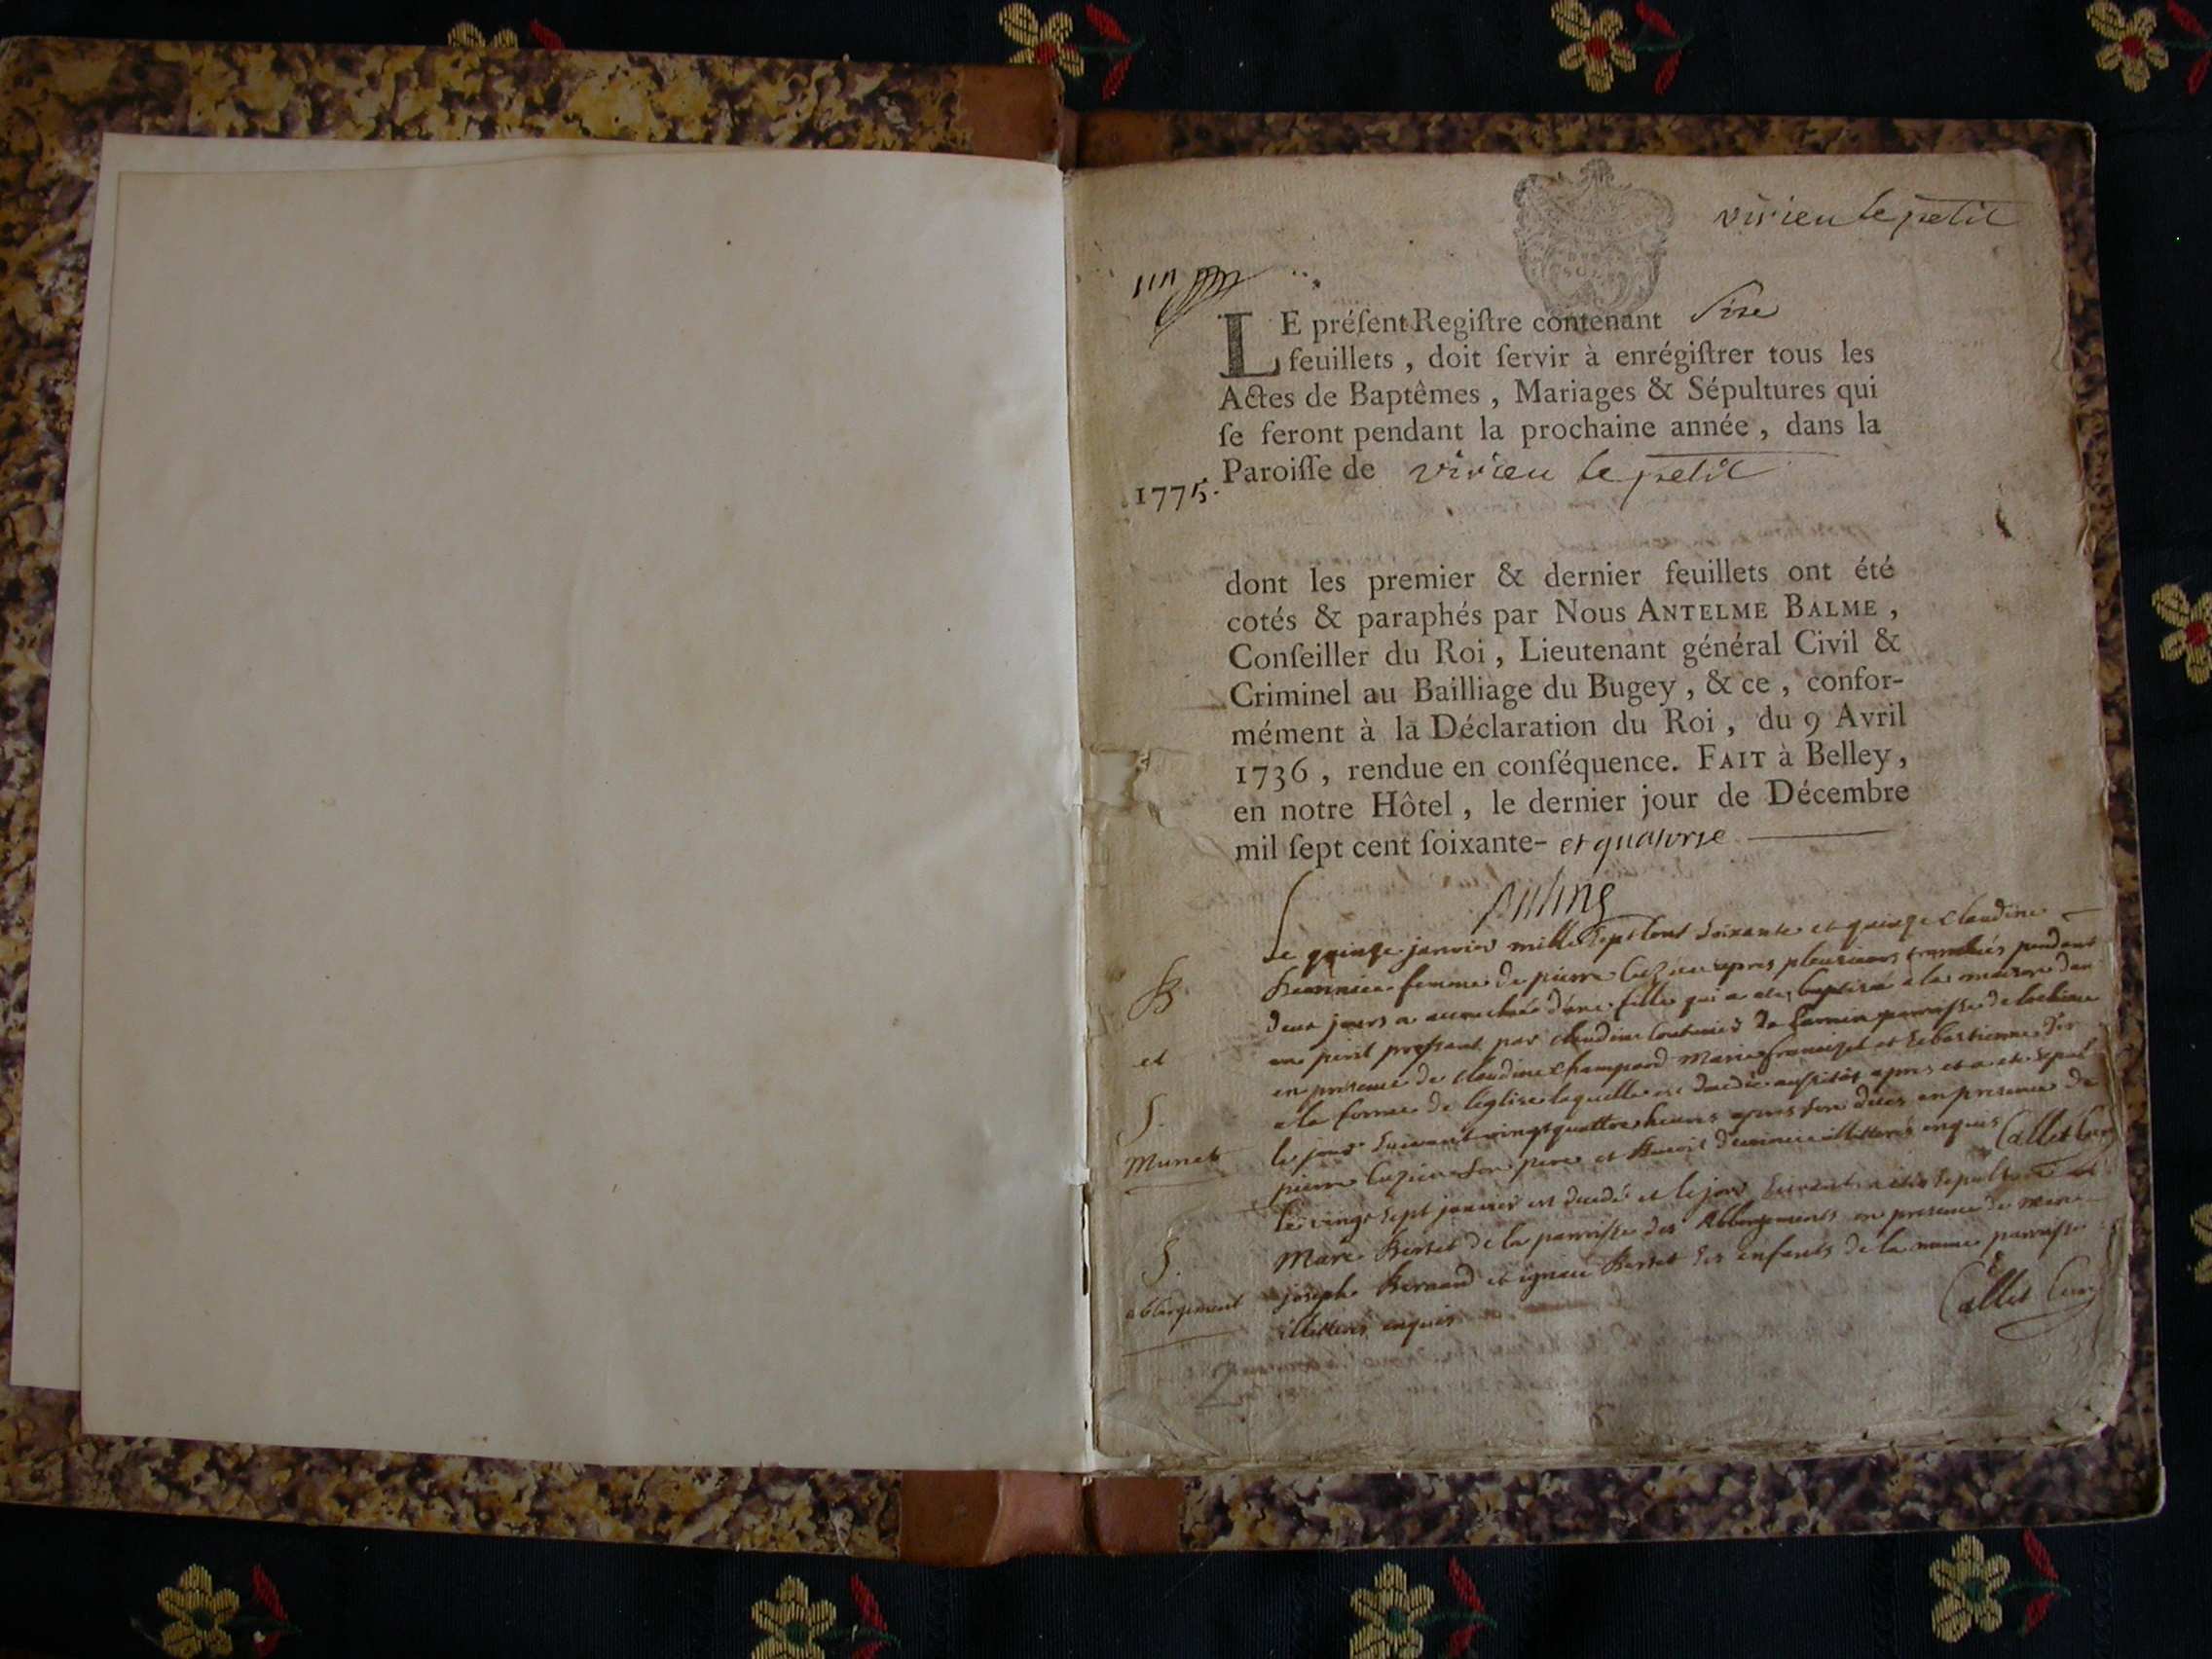 virieu le petit
un
LE préſent Regiſtre contenant Sixe
feuillets , doit ſervir à enrégiſtrer tous les
Actes de Baptêmes , Mariages & Sépultures qui
ſe feront pendant la prochaine année , dans la
Paroiſſe de virieu le petit
1775.
dont les premier & dernier feuillets ont été
cotés & paraphés par Nous ANTELME BALME ,
Conſeiller du Roi , Lieutenant général Civil &
Criminel au Bailliage du Bugey , & ce , confor-
mément à la Déclaration du Roi , du 9 Avril
1736 , rendue en conſéquence. FAIT à Belley ,
en notre Hôtel , le dernier jour de Décembre
mil ſept cent ſoixante- et quatorze
Le quinze janvier mille sept cent soixante et quinze claudine
B. femme de pierre après plusieurs pendant
deux jours a accouchée d'une fille qui a ete baptisée a la maison
et en peril pressant par claudine de paroisse de
en presence de claudine champard marie et sebastienne
S. a la forme de l'eglise laquelle est decedée aussitôt apres et a ete
munet le jour suivant vingt quattre heures apres son déces en presence de
pierre son pere et Benoit illitterés enquis Callet Curé
le vingt sept janvier est decedé et le jour suivant a eté
S. marc Bertet de la paroisse des Abbergements en presence de
abbergement joseph Bernard et ignace Bertet ses enfants de la meme paroisse
illitterés enquis Callet Curé